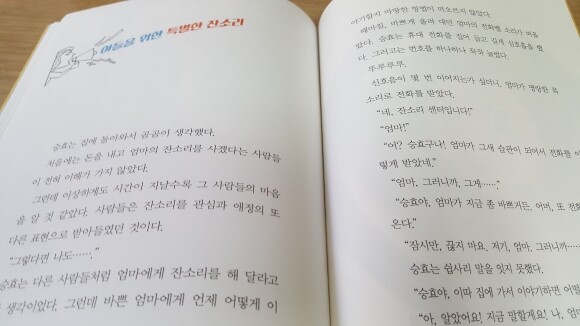 아들을 위한 특별한 잔소리
승효는 집에 돌아와서 곰곰이 생각했다.
처음에는 돈을 내고 엄마의 잔소리를 사겠다는 사람들
이 전혀 이해가 가지 않았다.
그런데 이상하게도 시간이 지날수록 그 사람들의 마음
을 알 것 같았다. 사람들은 잔소리를 관심과 애정의 또
다른 표현으로 받아들였던 것이다.
"그렇다면 나도……."
승효는 다른 사람들처럼 엄마에게 잔소리를 해 달라고
생각이었다. 그런데 바쁜 엄마에게 언제 어떻게 이
야기할지 마땅한 방법이 떠오르지 않았다.
때마침, 바쁘게 울려 대던 엄마의 전화벨 소리가 떠올
랐다. 승효는 휴대 전화를 집어 들고 길게 심호흡을 했
다. 그러고는 번호를 하나하나 꾹꾹 눌렀다.
뚜루루루.
신호음이 몇 번 이어지는가 싶더니, 엄마가 명랑한 목
소리로 전화를 받았다.
"네, 잔소리 센터입니다!"
"엄마!"
"어? 승효구나! 엄마가 그새 습관이 되어서 전화를
렇게 받았네."
"엄마, 그러니까, 그게……."
"승효야, 엄마가 지금 좀 바쁘거든. 어머, 또 전화
온다."
"잠시만, 끊지 마요. 저기, 엄마, 그러니까…
승효는 쉽사리 말을 잇지 못했다.
"승효야, 이따 집에 가서 이야기하면
"아, 알았어요! 지금 말할게요! 나, 엄마